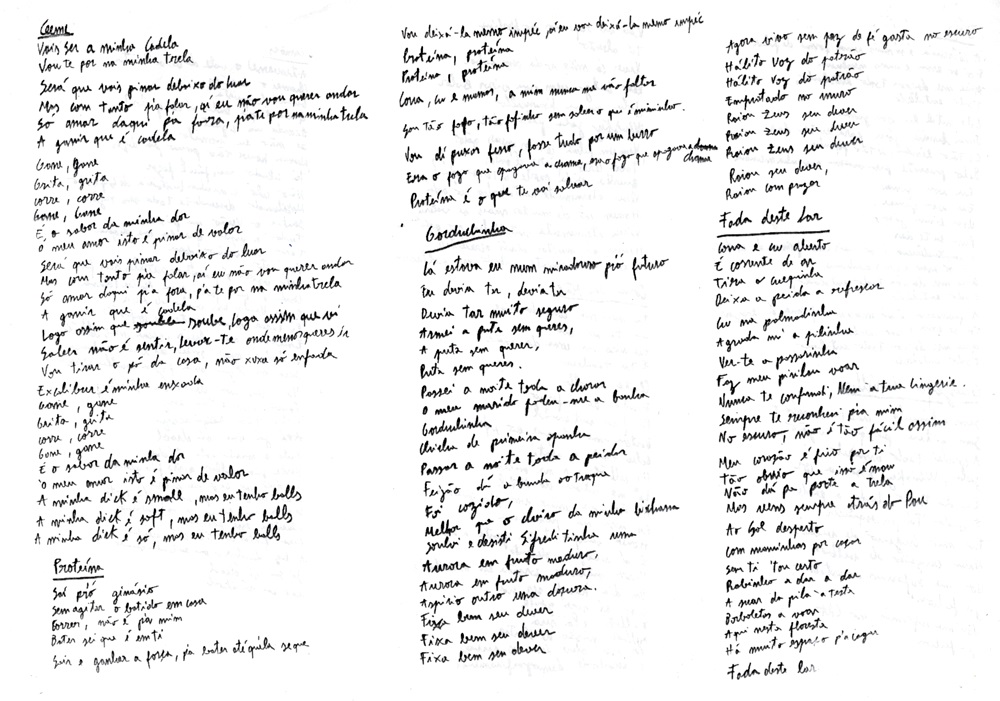 Vais ser a minha Cadela
Vou te por na minha trela
Será que vais pinar debaixo do luar
Mas com tanto pia falar, aí eu não vou querer andar
Só amar daqui pa forza, pia te por na minha trela
A gemir que é cadela
Geme, geme
Grita, grita
corre, corre
Geme, Geme
É o sabor da minha dor
O meu amor isto é pinar de valor
Será que vais pinar debaixo do luar
Mas com tanto pia falar, aí eu não vou querer andar
Só amar daqui pia fora, pia te por na minha trela
A gemir que é cadela
Logo assim que soube, logo assim que vi
Saber não é sentir, levar-te onde menos queres ir
Vou tirar o pó da casa, não xuxa só enfarda
Excalibur é minha enxada
Geme, geme
Grita, grita
corre, corre
Geme, geme
É o sabor da minha dor
O meu amor isto é pinar de valor
A minha dick é small, mas eu tenho balls
A minha dick é soft, mas eu tenho balls
A minha dick é só, mas eu tenho balls
Proteína
Saí pió ginásio
Sem agitar o batido em casa
Correr, não é pia mim
Bater sei que é em ti
Suis e ganhar a força, pia bater até quila seque
Vou deixá-la mesmo impéc, aí eu vou deixá-la memo impéc
Proteína, proteína
Proteína, proteína
Cona, cu e mamas, a mim nunca me vão faltar
Sou tão fofo, tão fofinho sem saber o que é miminho.
Vou di puxar ferro, fosse tudo por um berro
Era o fogo que apagava a chama, era o fogo que apagava a chama
Proteína é o que te vai salvar
Gorduchinha
Lá estava eu num miradouro pió futuro
Eu devia ter, devia ter
Devia tar muito seguro
Armei a puta sem queres,
A puta sem querer,
Puta sem queres.
Passei a noite toda a chorar
O meu marido pediu-me a bunha
Gorduchinha
Chicha de primeira apanha
Passar a noite toda a peidar
Feijão dá a bunda o traque
Foi cozido,
Melhor que o cheiro da minha bichana
Aurora em fruto maduro,
Aurora em fruto maduro,
Aspirio outro uma doçura.
Fixa bem seu dever
Fixa bem seu dever
Fixa bem seu dever
Agora vivo sem paz de fé gasta no escuro
Hálito Voz do patrão
Hálito Voz do patrão
Empestado no muro
Raion Zeus seu dever
Raion Zeus seu dever
Raion Zeus seu dever
Raion seu dever,
Raion com prazer
Fada deste Lar
Cona e cu aberto
É corrente de ar
Tira a cuequinha
Deixa a peida a refrescar
Cu na palmadinha
Agrada mi a pilinha
Ver-te a passarinha
Faz meu pirilau voar
Nunca te confundi, Nem a tua lingerie.
Sempre te reconheci pia mim
No escuro, não é tão fácil assim
Meu coração é frio por ti
Tão obvio que isso é mau
Não dá pa porte a trela
Mas vens sempre atrás do Pau
Ao Sol desperto
Com maminhas por cegar
Sem ti tou certo
Rabinho a dar a dar
A suar da pila a testa
Borboletas a voar
Aqui nesta floresta
Há muito espaço p'a cagar
Fada deste lar